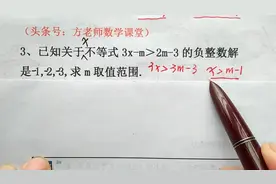 (头条号：方老师数学课堂)
x
3、已知关于不等式 3x-m＞2m-3 的负整数解
是-1,-2,-3,求 m 取值范围. 3x>3m-3 x>m-1